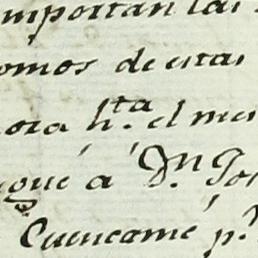 importan las
omos de estas
ora h.ta el me
egué á D.n Jos
Cuencamé p.r